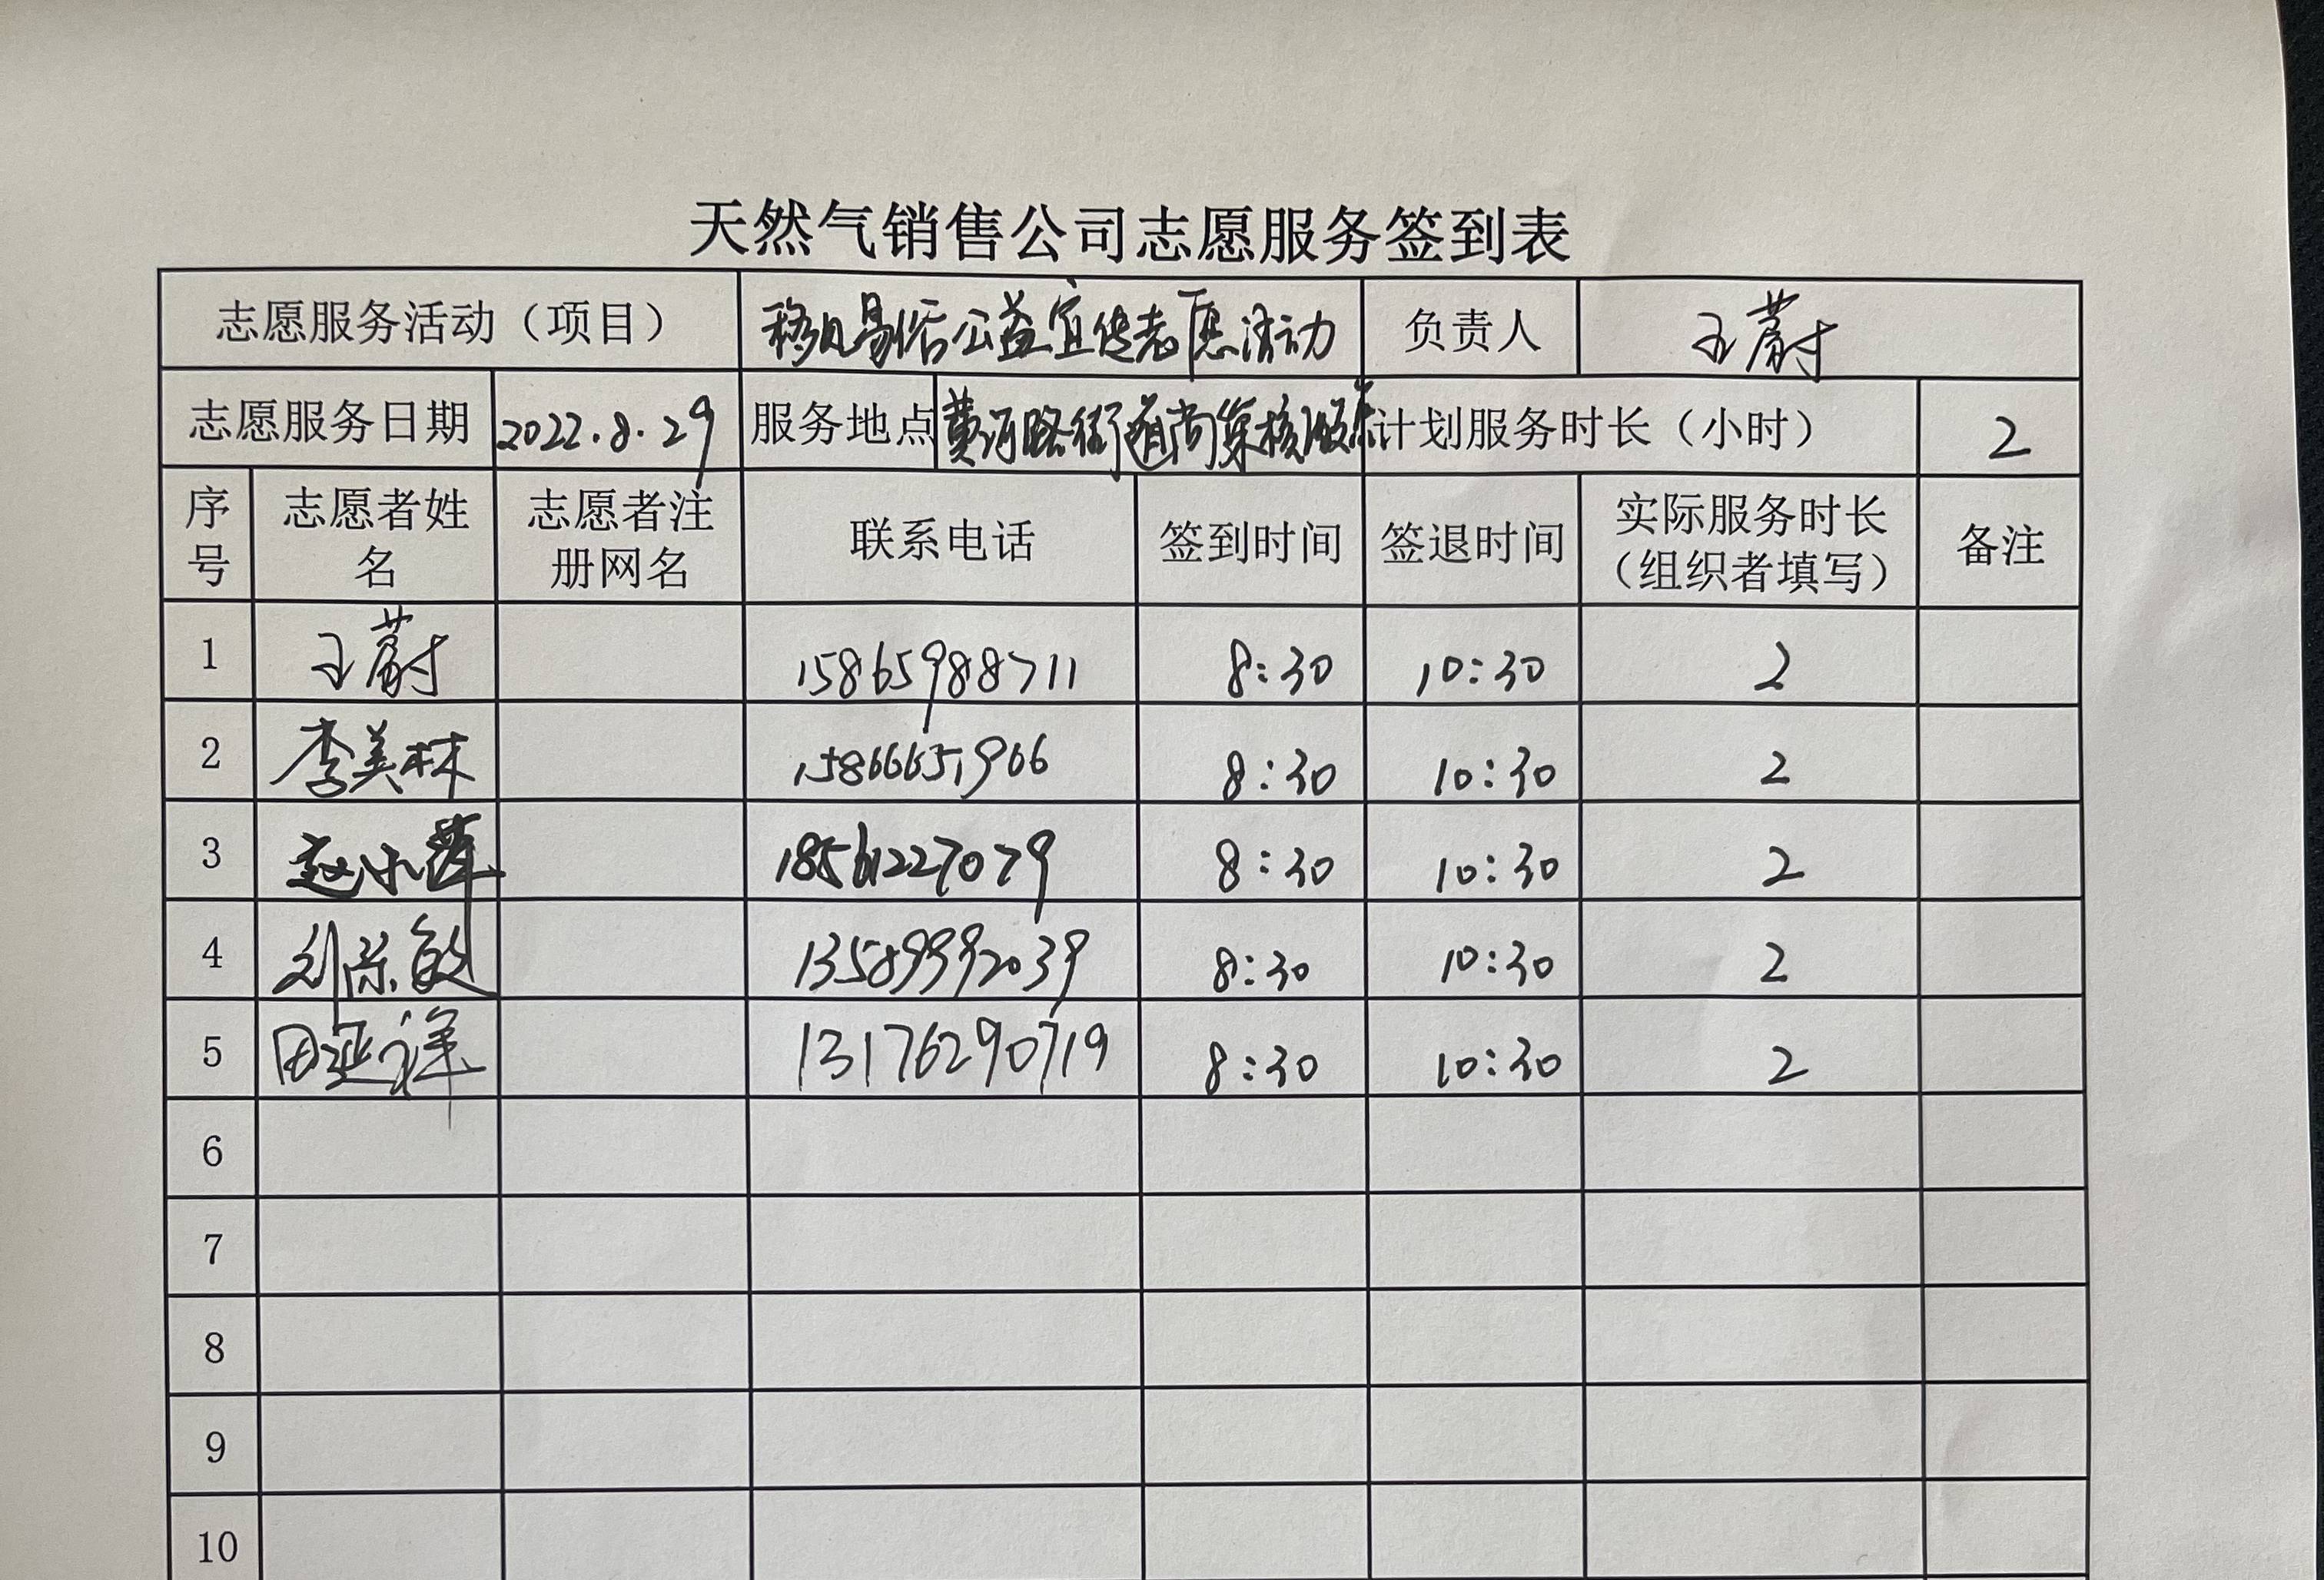 天然气销售公司志愿服务签到表
志愿服务活动（项目） 移风易俗公益宣传志愿活动 负责人 王蔚
志愿服务日期 2022.8.29 服务地点 黄河路街道尚 核酸 计划服务时长（小时） 2
序号 志愿者姓名 志愿者注册网名 联系电话 签到时间 签退时间 实际服务时长（组织者填写） 备注
1 王蔚 15865988711 8:30 10:30 2
2 李美林 15866651966 8:30 10:30 2
3 赵小萍 18561227079 8:30 10:30 2
4 刘荣敏 13589992039 8:30 10:30 2
5 田延祥 13176290719 8:30 10:30 2
6
7
8
9
10